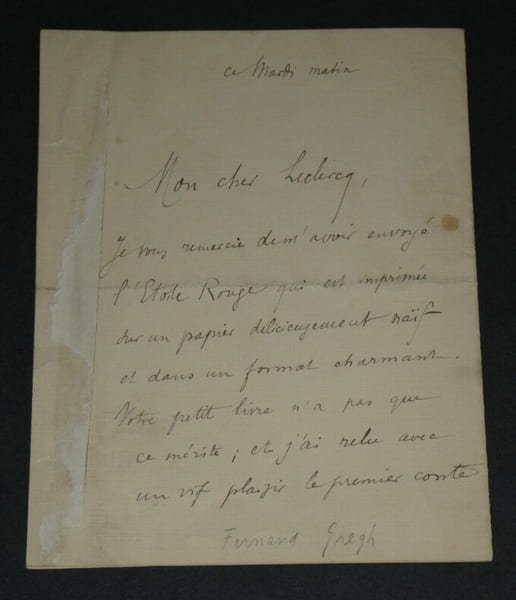 ce Mardi matin
Mon cher Leclercq,
Je vous remercie de m'avoir envoyé
l'Etoile Rouge qui est imprimée
sur un papier délicieusement naïf
et dans un format charmant.
Votre petit livre n'a pas que
ce mérite ; et j'ai relu avec
un vif plaisir le premier conte
Fernand Gregh